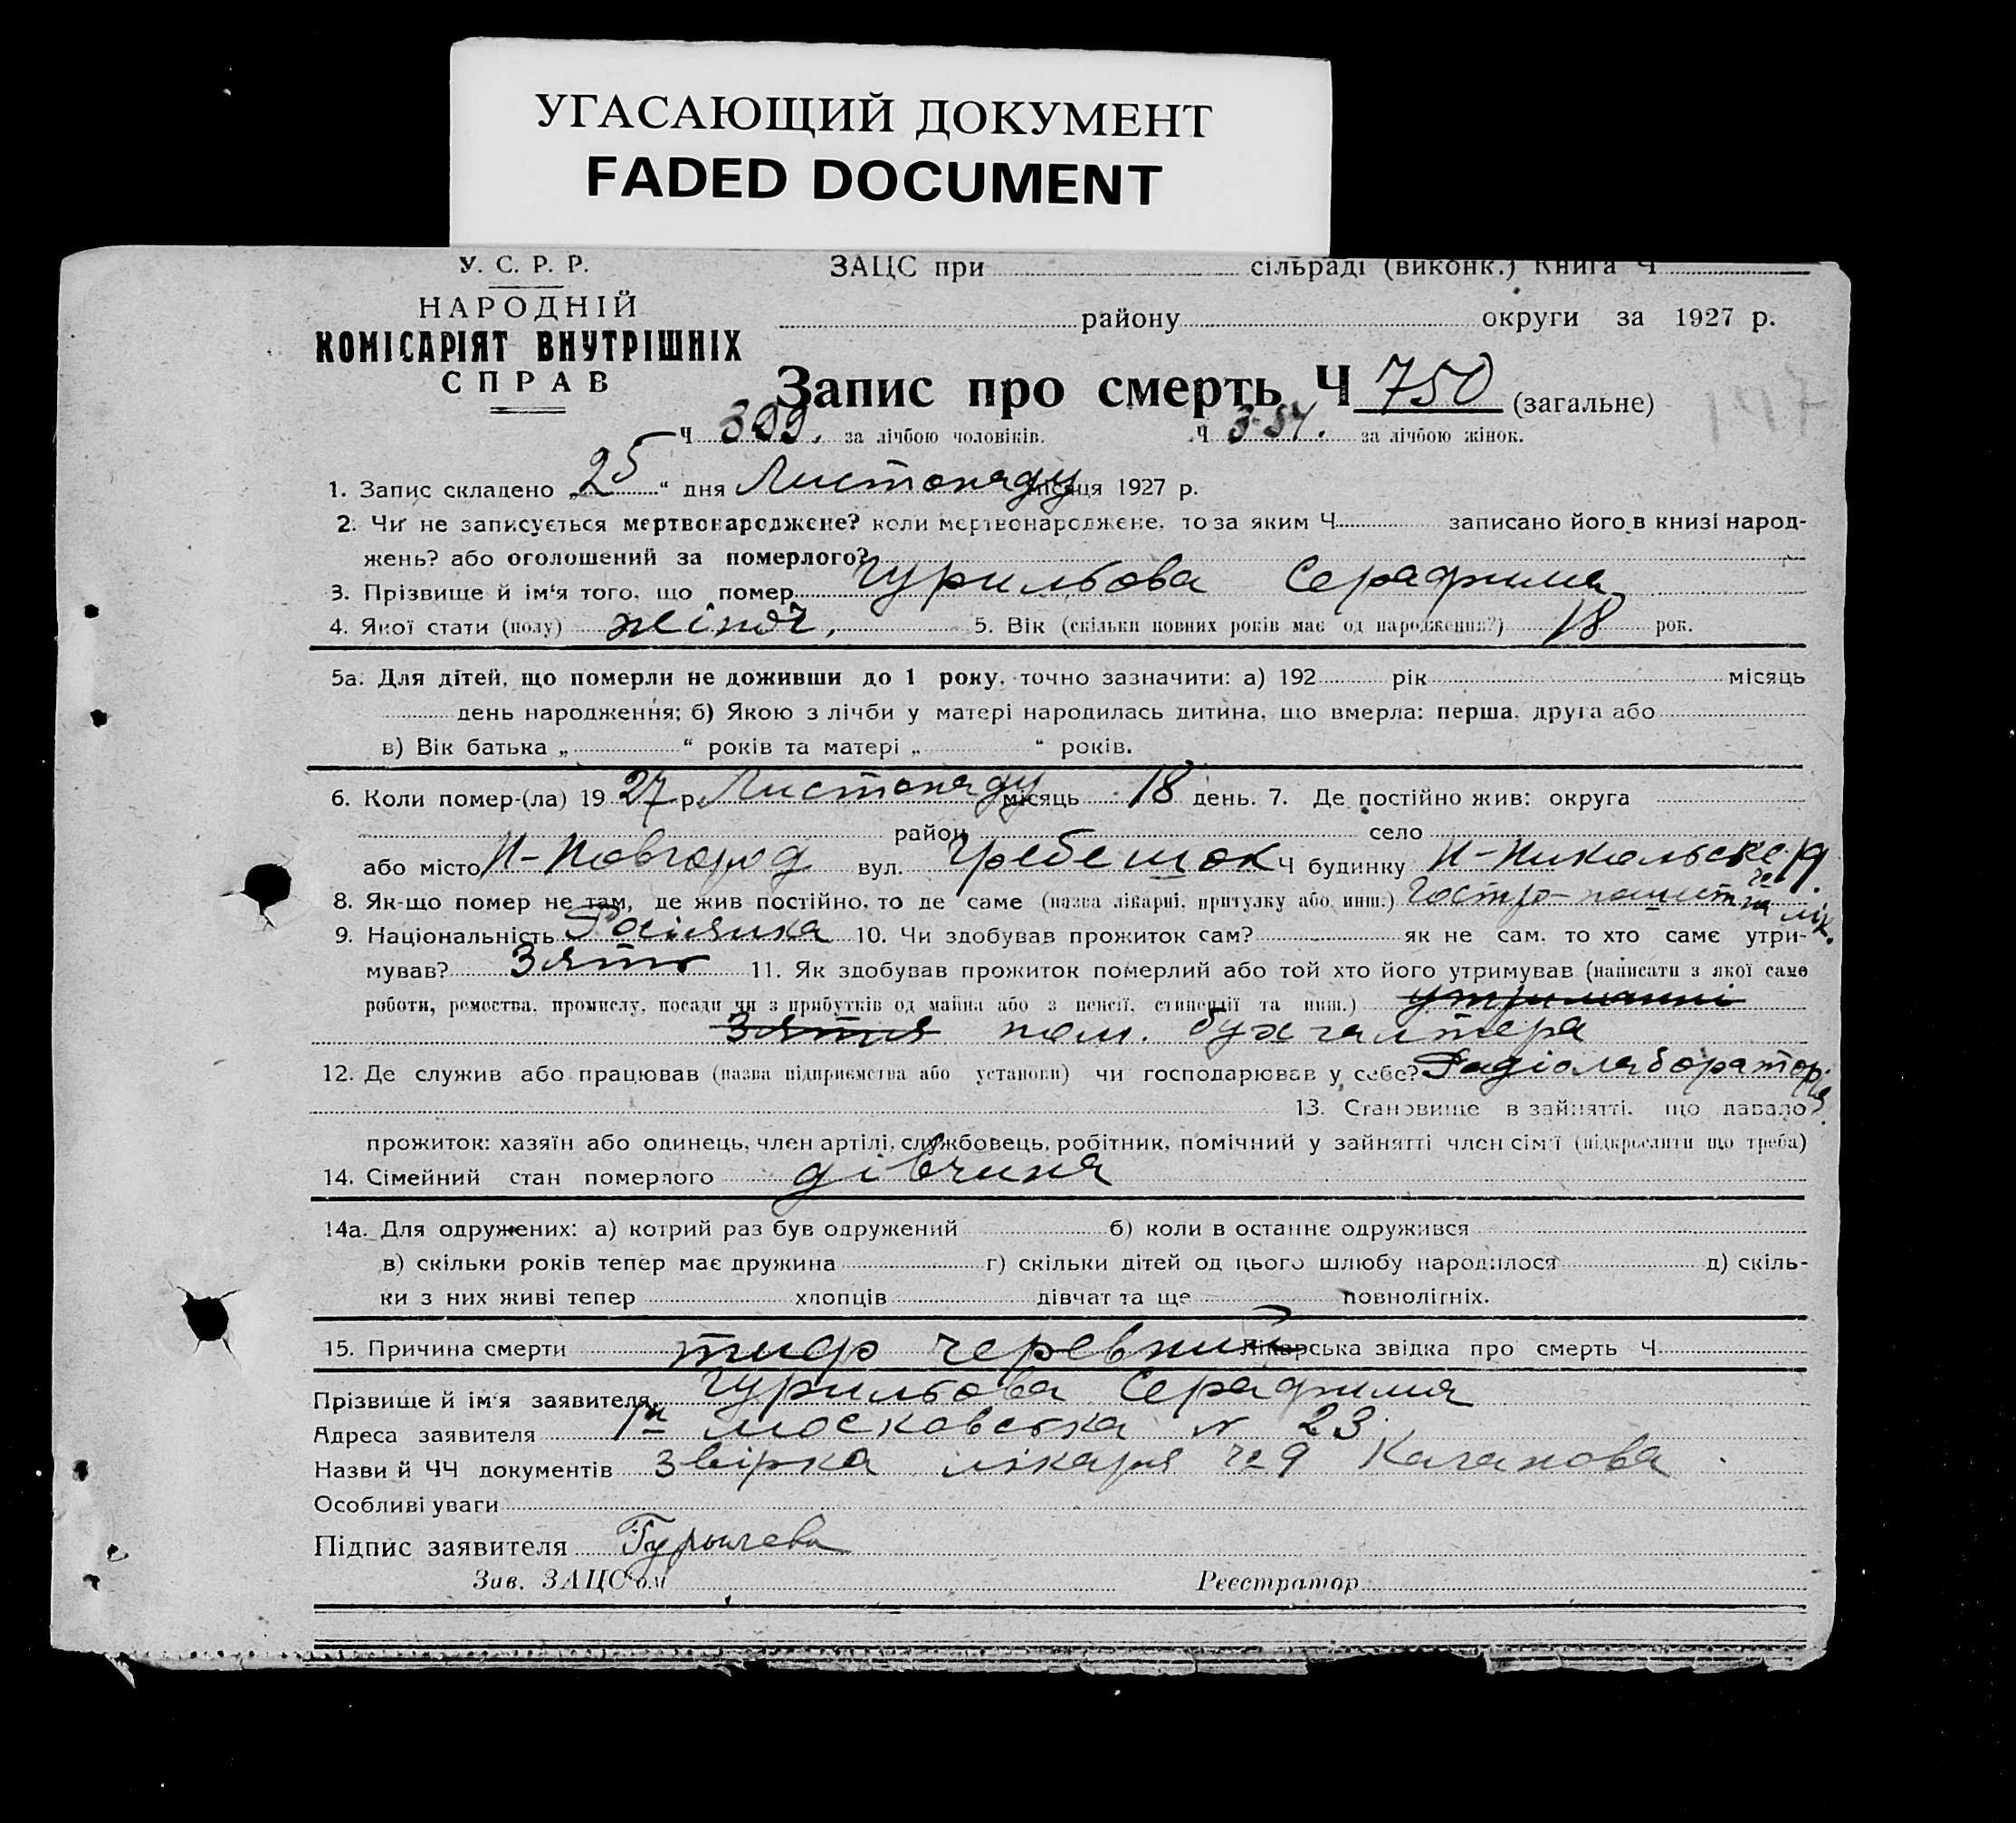 УГАСАЮЩИЙ ДОКУМЕНТ
FADED DOCUMENT
У. С. Р. Р.
НАРОДНІЙ
КОМІСАРІЯТ ВНУТРІШНІХ
СПРАВ
ЗАЦС при сільраді (виконк.) Книга Ч
району округи за 1927 р.
Запис про смерть Ч 750 (загальне)
Ч 399. за лічбою чоловіків. Ч за лічбою жінок.
1. Запис складено „25“ дня Листопаду місяця 1927 р.
2. Чи не записується мертвонароджене? коли мертвонароджене, то за яким Ч записано його в книзі народ-
жень? або оголошений за померлого?
3. Прізвище й ім'я того, що помер Гурильова Серафима
4. Якої стати (полу) жіноч. 5. Вік (скільки повних років має од народження?) 18 рок.
5а. Для дітей, що померли не доживши до 1 року, точно зазначити: а) 192 рік місяць
день народження; б) Якою з лічби у матері народилась дитина, що вмерла: перша, друга або
в) Вік батька „ “ років та матері „ “ років.
6. Коли помер-(ла) 19 27 р. Листопаду місяць 18 день. 7. Де постійно жив: округа
район село
або місто Н-Новгород вул. Гребешок Ч будинку Н-Никольське 19.
8. Як-що помер не там, де жив постійно, то де саме (назва лікарні, притулку або инш.) Гостро-
9. Національність Росіянка 10. Чи здобував прожиток сам? як не сам, то хто саме утри-
мував? Зять 11. Як здобував прожиток померлий або той хто його утримував (написати з якої саме
роботи, ремества, промислу, посади чи з прибутків од майна або з пенсії, стипендії та инш.) утриманні
Зятя пом. бухгалтера
12. Де служив або працював (назва підприємства або установи) чи господарював у себе? Радіолабораторія
13. Становище в зайнятті, що давало
прожиток: хазяїн або одинець, член артілі, службовець, робітник, помічний у зайнятті член сім'ї (підкреслити що треба)
14. Сімейний стан померлого дівчина
14а. Для одружених: а) котрий раз був одружений б) коли в останнє одружився
в) скільки років тепер має дружина г) скільки дітей од цього шлюбу народилося д) скіль-
ки з них живі тепер хлопців дівчат та ще повнолітніх.
15. Причина смерти тиф черевний Лікарська звідка про смерть Ч
Прізвище й ім'я заявителя Гурильова Серафима
Адреса заявителя 1а московська N 23
Назви й ЧЧ документів Звірка лікаря № 9 Каганова
Особливі уваги
Підпис заявителя Гурылева
Зав. ЗАЦС'ом Реєстратор